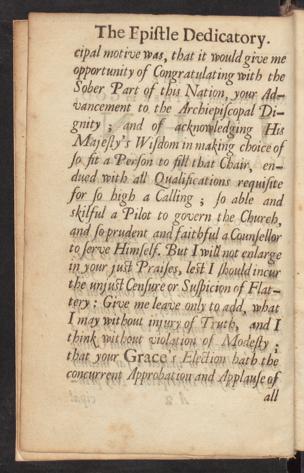 The Epiſtle Dedicatory.
cipal motive was, that it would give me
opportunity of Congratulating with the
Sober Part of this Nation, your Ad-
vancement to the Archiepiſcopal Di-
gnity ; and of acknowledging His
Majeſty's Wiſdom in making choice of
ſo fit a Perſon to fill that Chair, en-
dued with all Qualifications requiſite
for ſo high a Calling ; ſo able and
skilful a Pilot to govern the Church,
and ſo prudent and faithful a Counſellor
to ſerve Himſelf. But I will not enlarge
in your juſt Praiſes, leſt I ſhould incur
the unjuſt Cenſure or Suſpicion of Flat-
tery : Give me leave only to add, what
I may without injury of Truth, and I
think without violation of Modeſty ;
that your Grace's Election hath the
concurrent Approbation and Applauſe of
all